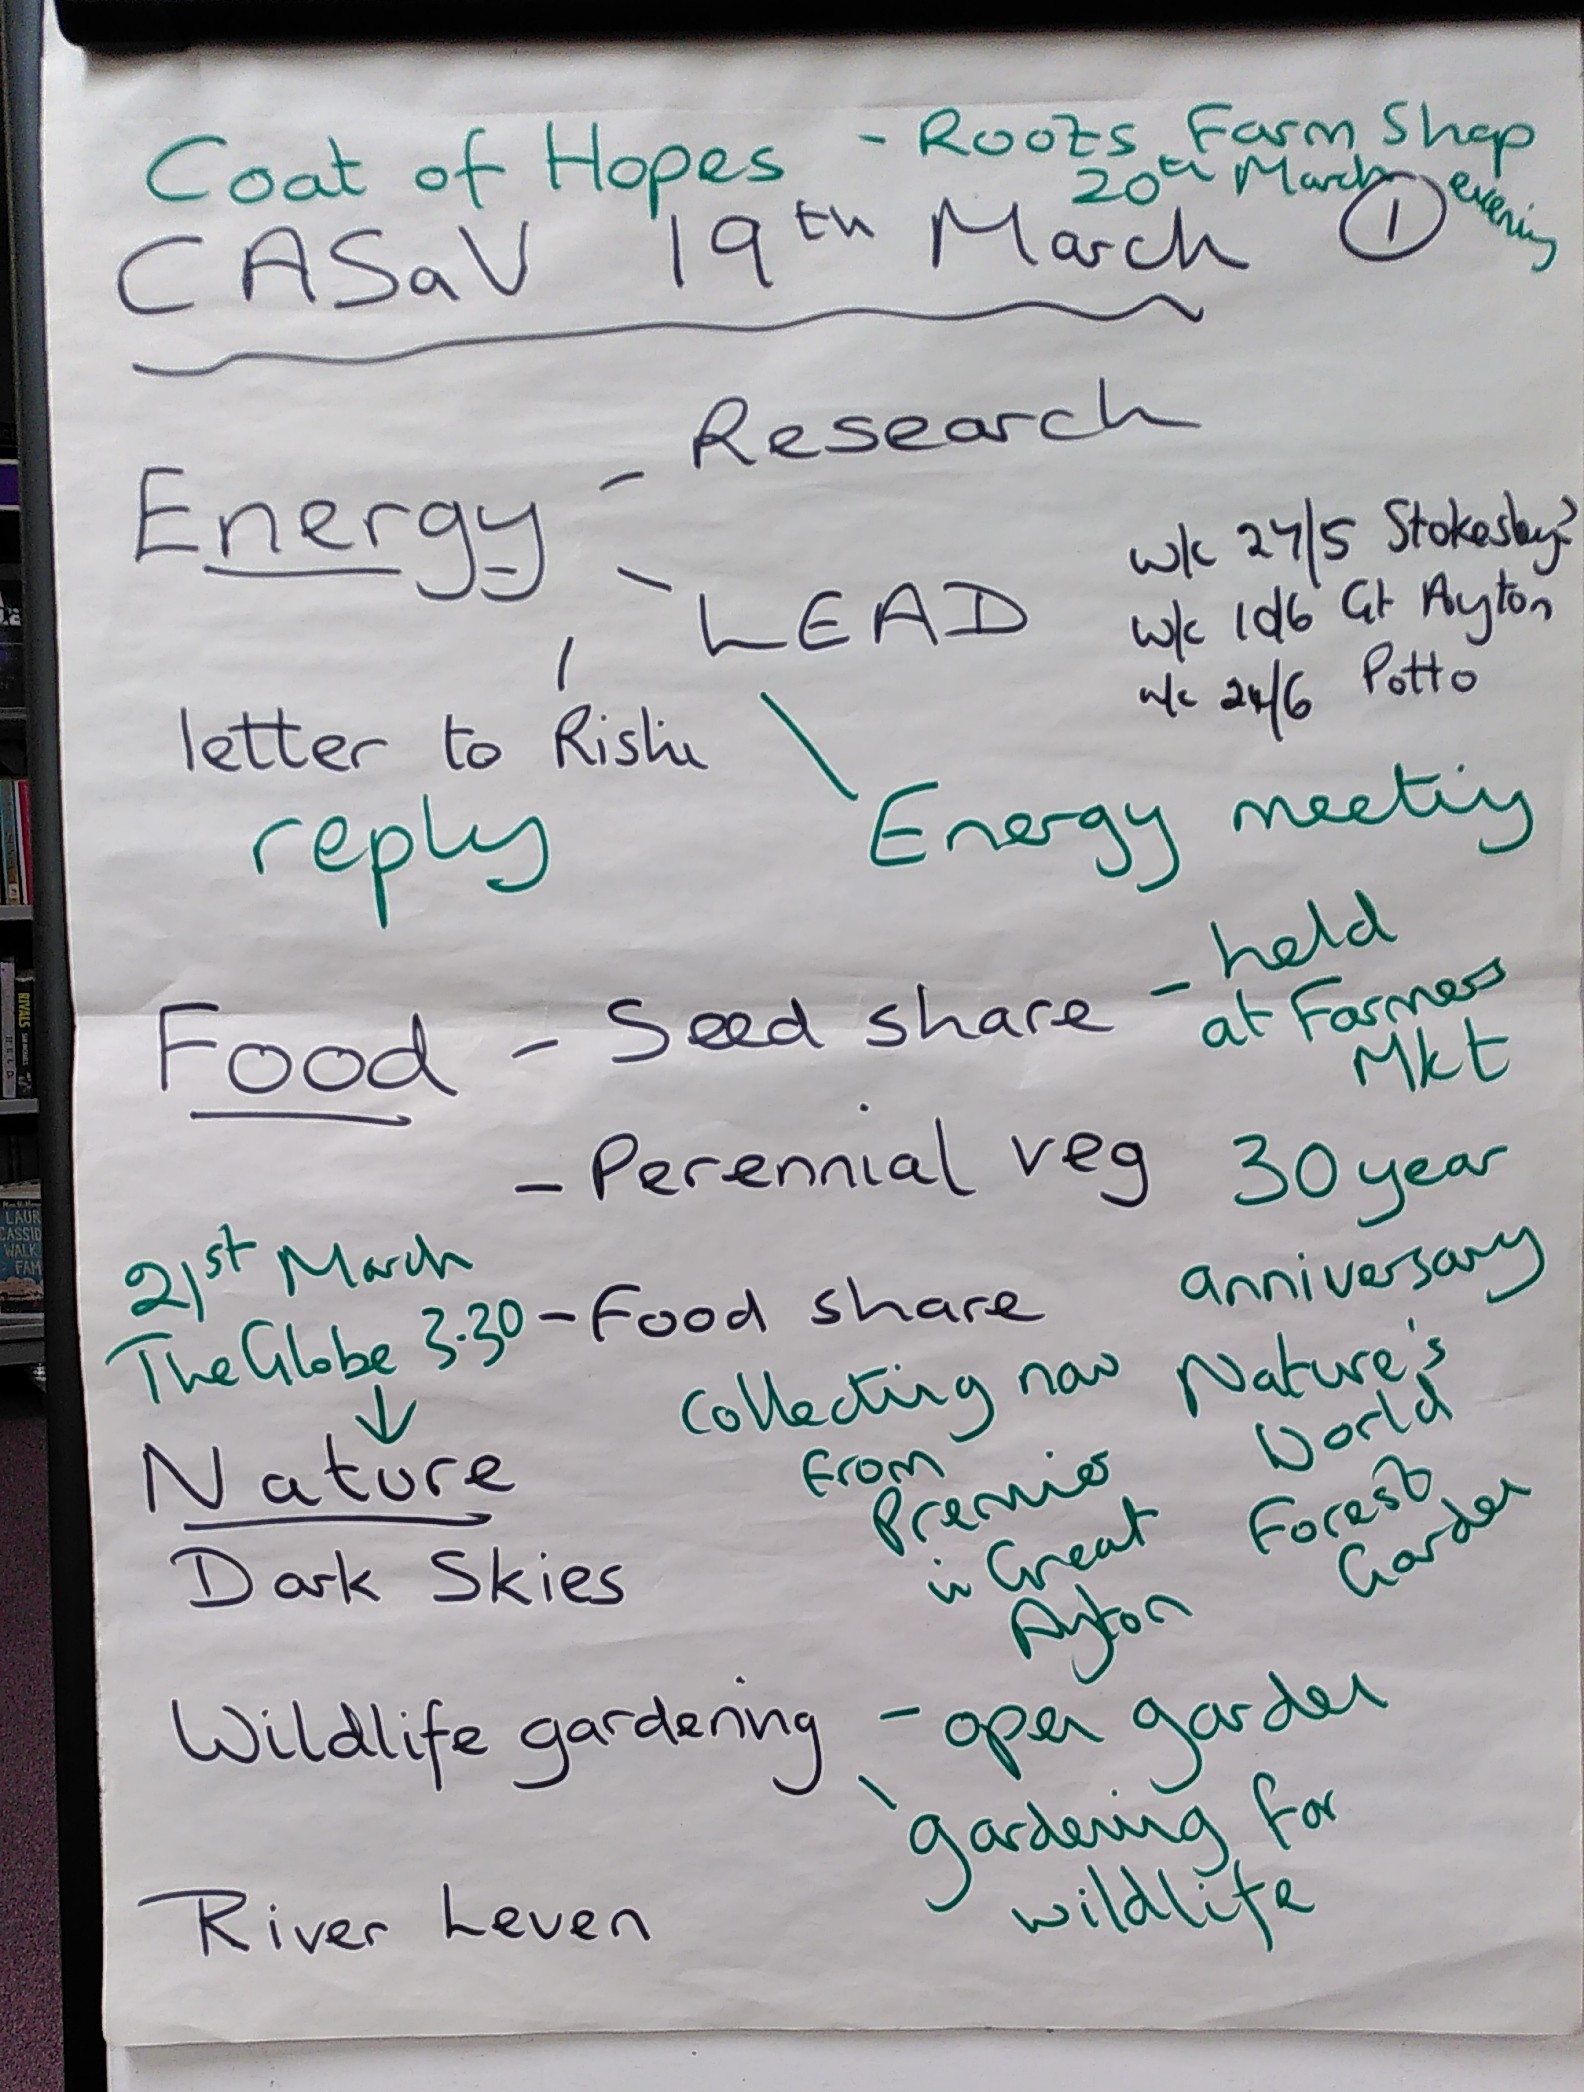 Coat of Hopes - Roots Farm Shop
20th March evening
CASaV 19th March 1
Energy - Research
- LEAD
w/c 27/5 Stokesley?
w/c 10/6 Gt Ayton
w/c 24/6 Potto
letter to Rishi
reply
Energy meeting
Food - Seed share - held
at Farmers
Mkt
- Perennial veg 30 year
anniversary
Nature's
World
Forest
Garden
21st March
The Globe 3.30
- Food share
collecting now
from
Premier
in Great
Ayton
Nature
Dark Skies
Wildlife gardening - open garden
gardening for
wildlife
River Leven
RIVALS
LAUR
CASSID
WALK
FAM